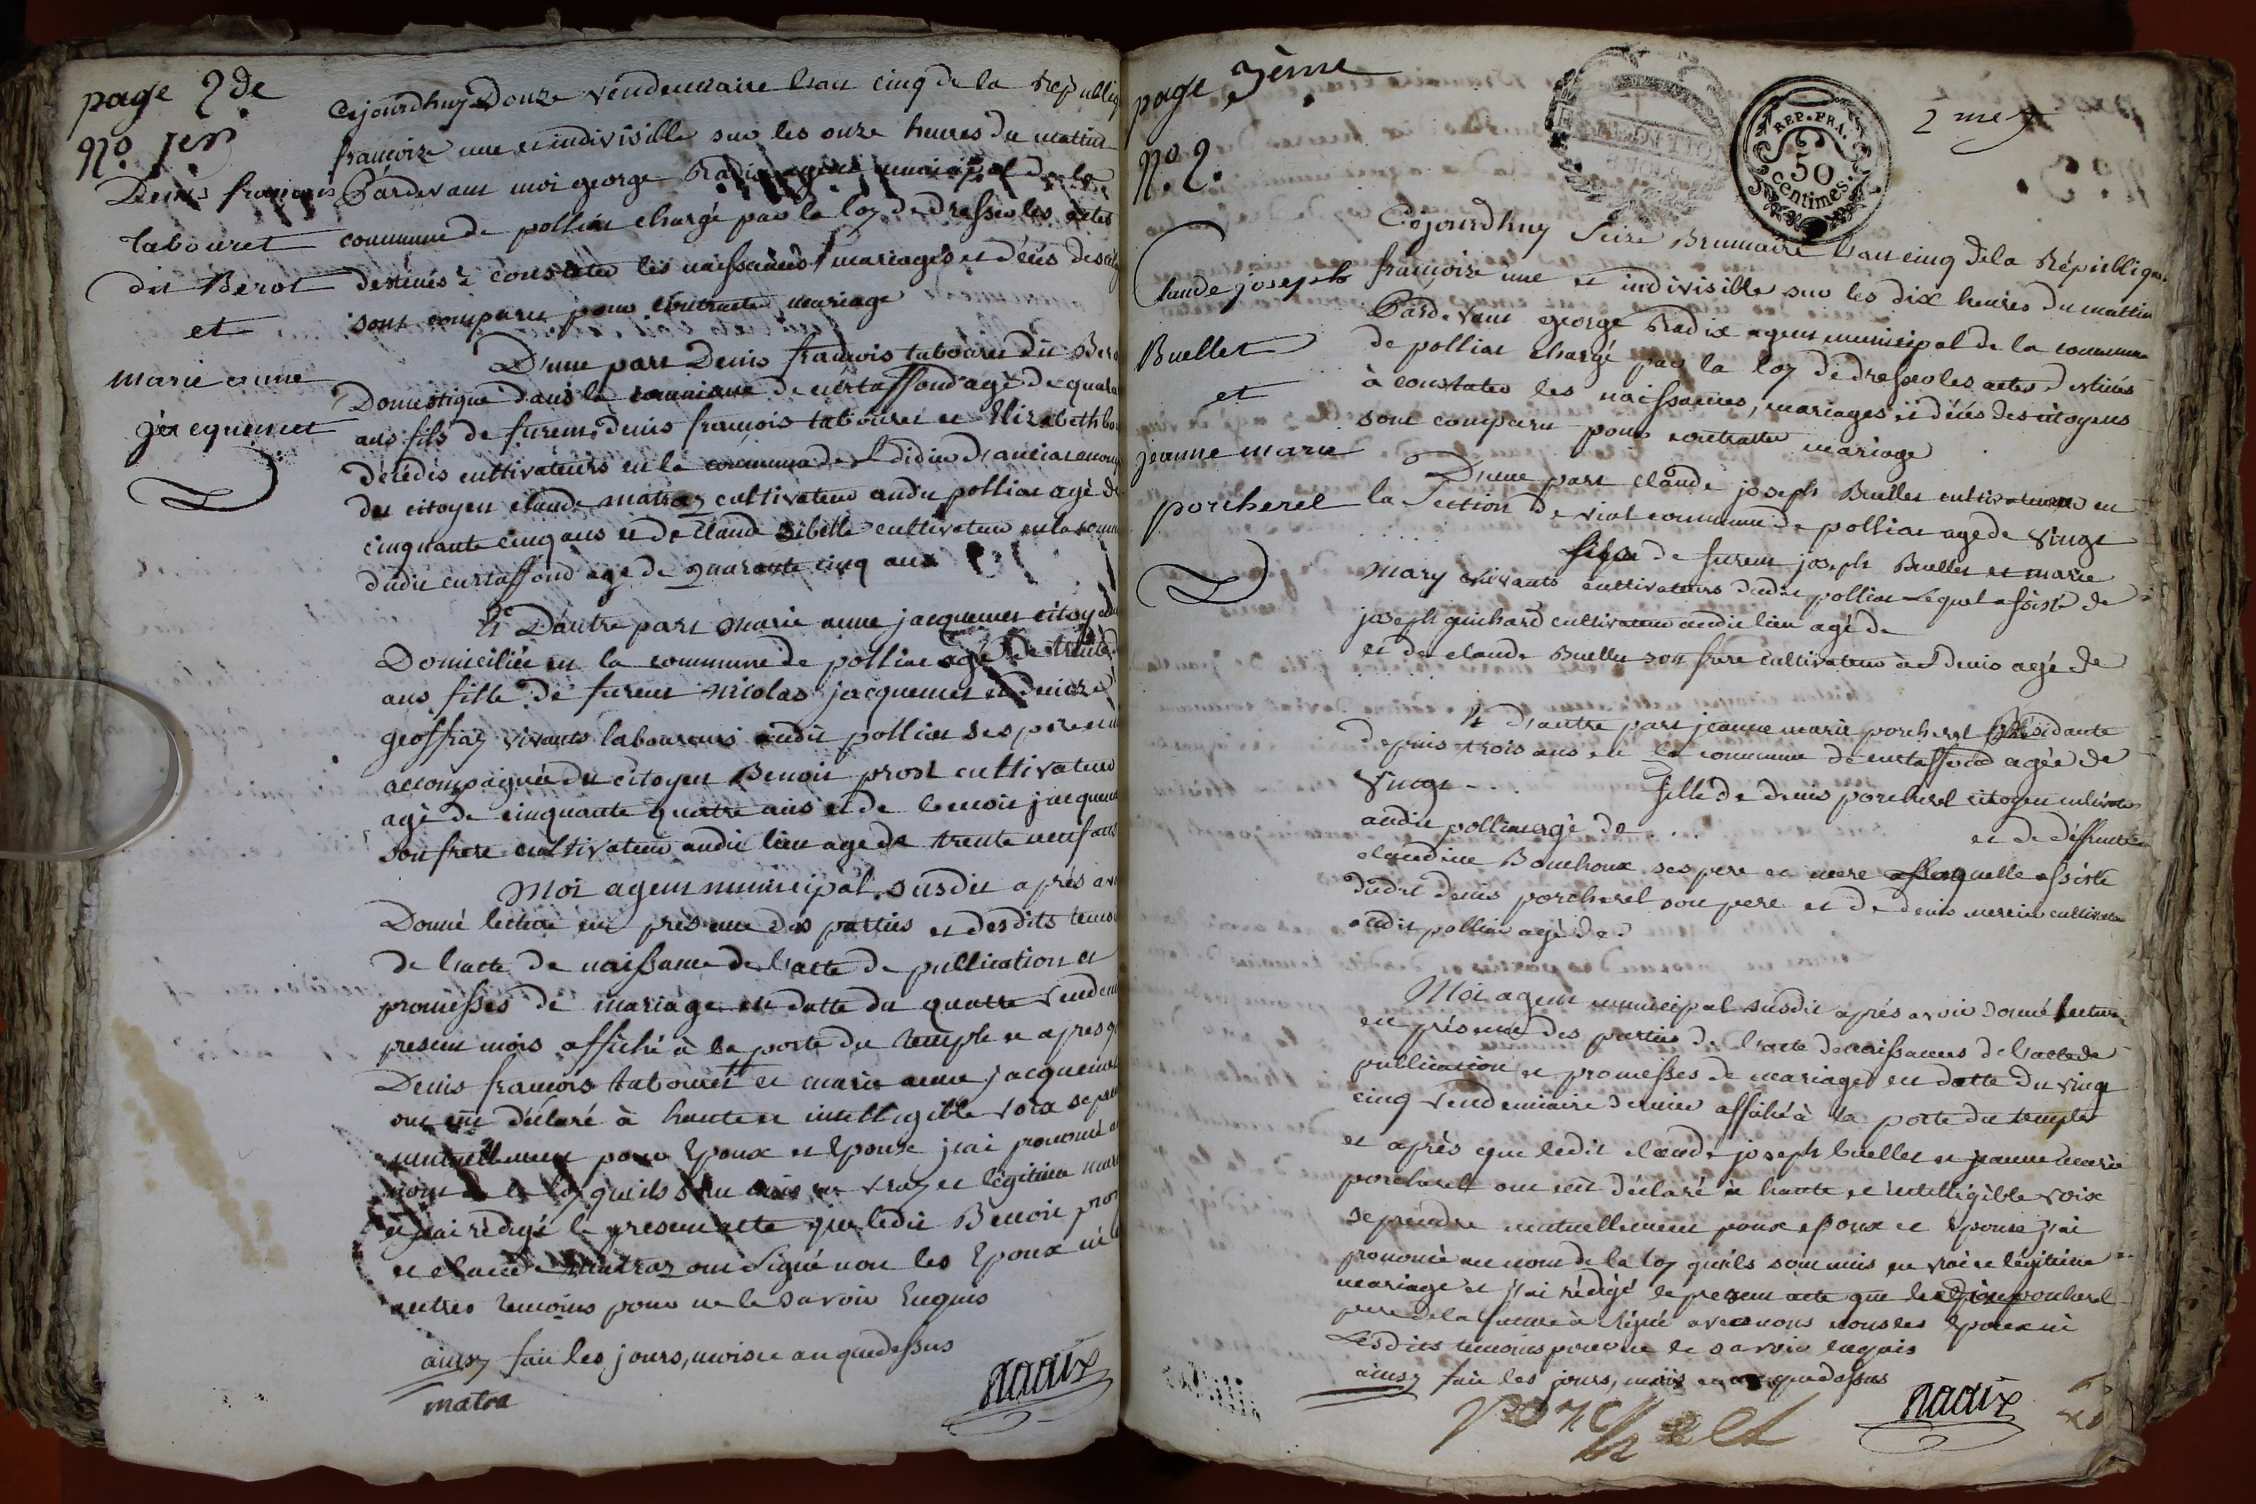 page 2de
No. 1er
Denis francois
tabouret
dit Berot
et
marie anne
jacquemet
Cejourdhuy Douze vendemiaire l'an cinq de la Républiq
francoise une et indivisible sur les onze heures du mattin
Pardevant moi george Radix agent municipal de la
commune de polliat chargé par la loy de dresser les actes
destinés à constater les naissances, mariages et décès des
sont comparu pour contracter mariage
D'une part Denis francois tabouret dit Ber
Domestique dans la commune de curtaffond agé de quara
ans fils de furent denis francois tabouret et Elizabeth
décédés cultivateurs en la commune de St didier
du citoyen claude matraz cultivateur audit polliat agé de
cinquante cinq ans et de claude sibelle cultivateur en la comm
dudit curtaffond agé de quarante cinq ans
Et Dautre part marie anne jacquemet
Domiciliée en la commune de polliat agé de trente
ans fille de furent nicolas jacquemet et denize
geoffray vivants laboureurs audit polliat ses pere et m
accompagnée du citoyen Benoit prost cultivateur
agé de cinquante quatre ans et de benoit jacqueme
son frere cultivateur audit lieu agé de trente neuf ans
Moi agent municipal susdit après av
Donné lecture en présence des parties et desdits temo
de l'acte de naissance de l'acte de publication et
promesses de mariage en datte du quatre vendem
present mois affiché à la porte du temple et apres q
Denis francois tabouret et marie anne jacqueme
ont eut déclaré à haute et intelligible voix se pren
mutuellement pour Epoux et Epouse j'ai prononcé a
nom de la loy quils sont unis en vray et légitime mar
et j'ai rédigé le present acte que ledit Benoit pros
et claude matraz ont signé non les Epoux ni l
autres temoins pour ne le savoir Enquis
ainsy fait les jours, mois et an que dessus
matra
Radix
page 3ème
No. 2.
REP. FRA.
50
centimes.
2 me
Claude joseph
Buellet
et
jeanne marie
porcherel
Cejourdhuy Seize Brumaire l'an cinq de la Républiqu
francoise une et indivisible sur les dix heures du mattin
Pardevant george Radix agent municipal de la commune
de polliat chargé par la loy de dresser les actes destinés
à constater les naissances, mariages et décès des citoyens
sont comparu pour contracter mariage
D'une part claude joseph Buellet cultivateur en
la Section de vial commune de polliat agé de vingt
fils de furent joseph Buellet et marie
mary vivants cultivateurs dudit polliat Lequel assisté de
joseph guichard cultivateur audit lieu agé de
et de claude Buellet son frere cultivateur à St denis agé de
Et d'autre part jeanne marie porcherel Résidante
depuis trois ans en la commune de curtaffond agée de
vingt fille de denis porcherel citoyen cultivateur
audit polliat agé de et de deffunte
claudine Bouchoux ses pere et mere laquelle assisté
dudit denis porcherel son pere et de denis mercier cultivateur
audit polliat agé de
Moi agent municipal susdit après avoir donné lecture
en présence des parties de l'acte de naissances de l'acte de
publication et promesses de mariage en datte du vingt
cinq vendemiaire dernier affiché à la porte du temple
et après que ledit claude joseph buellet et jeanne marie
porcherel ont eut déclaré à haute et intelligible voix
se prendre mutuellement pour époux et épouse j'ai
prononcé au nom de la loy quils sont unis en vrai et légitime
mariage et j'ai rédigé le present acte que ledit porcherel
pere de la future à signé avec nous non les epoux ni
Lesdits temoins pour ne le savoir enquis
ainsy fait les jours, mois et an que dessus
porcherelt
Radix